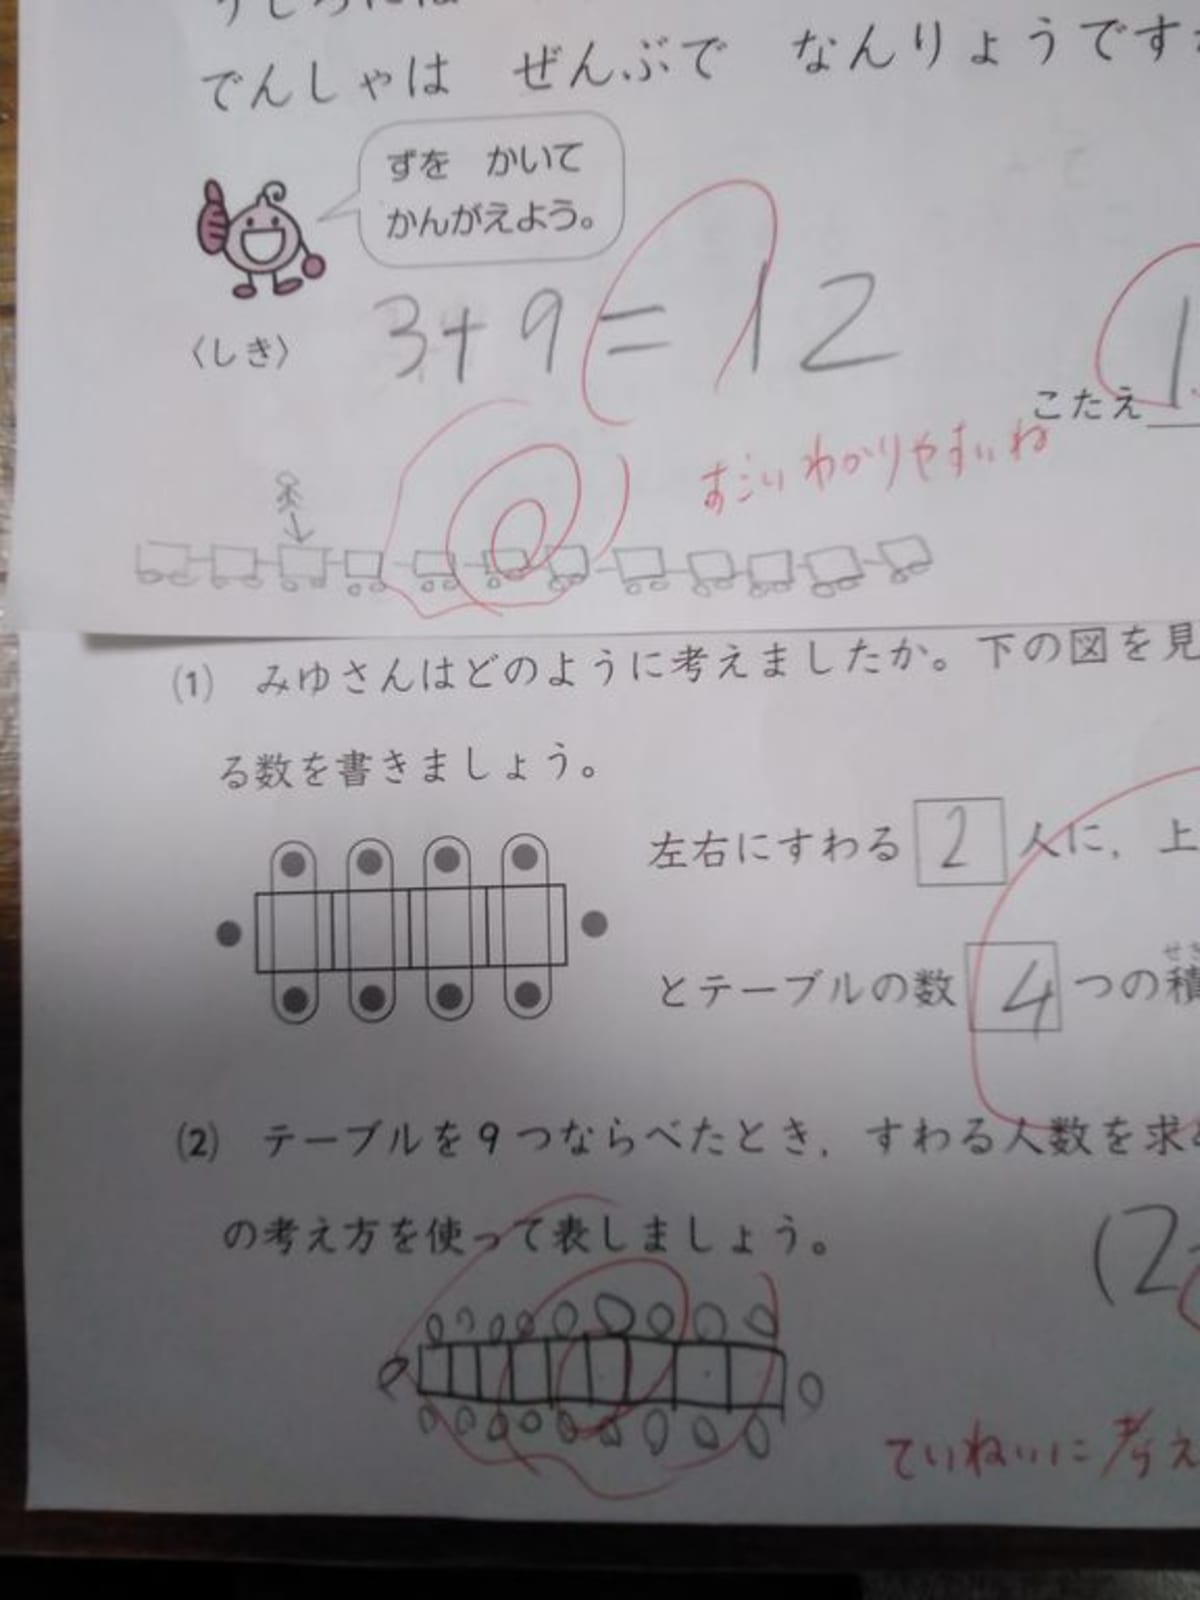 うしろには
でんしゃは ぜんぶで なんりょうです
ずを かいて
かんがえよう。
〈しき〉 3+9=12
こたえ 1
すごいわかりやすいね
(1) みゆさんはどのように考えましたか。下の図を見
る数を書きましょう。
左右にすわる 2 人に，上
とテーブルの数 4 つの積
(2) テーブルを9つならべたとき，すわる人数を求
の考え方を使って表しましょう。
(2
ていねいに考え